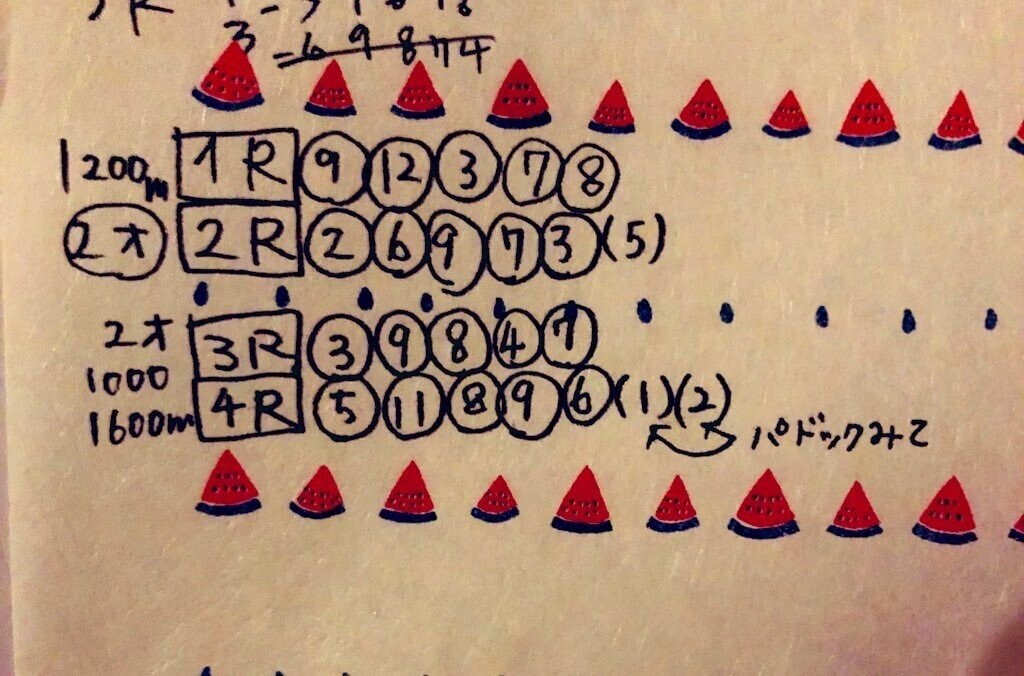 3 = 6 9 8 7 4
1200m 1R ⑨ ⑫ ③ ⑦ ⑧
2才 2R ② ⑥ ⑨ ⑦ ③ (5)
2才 1000 3R ③ ⑨ ⑧ ④ ⑦
1600m 4R ⑤ ⑪ ⑧ ⑨ ⑥ (1)(2)
パドックみて